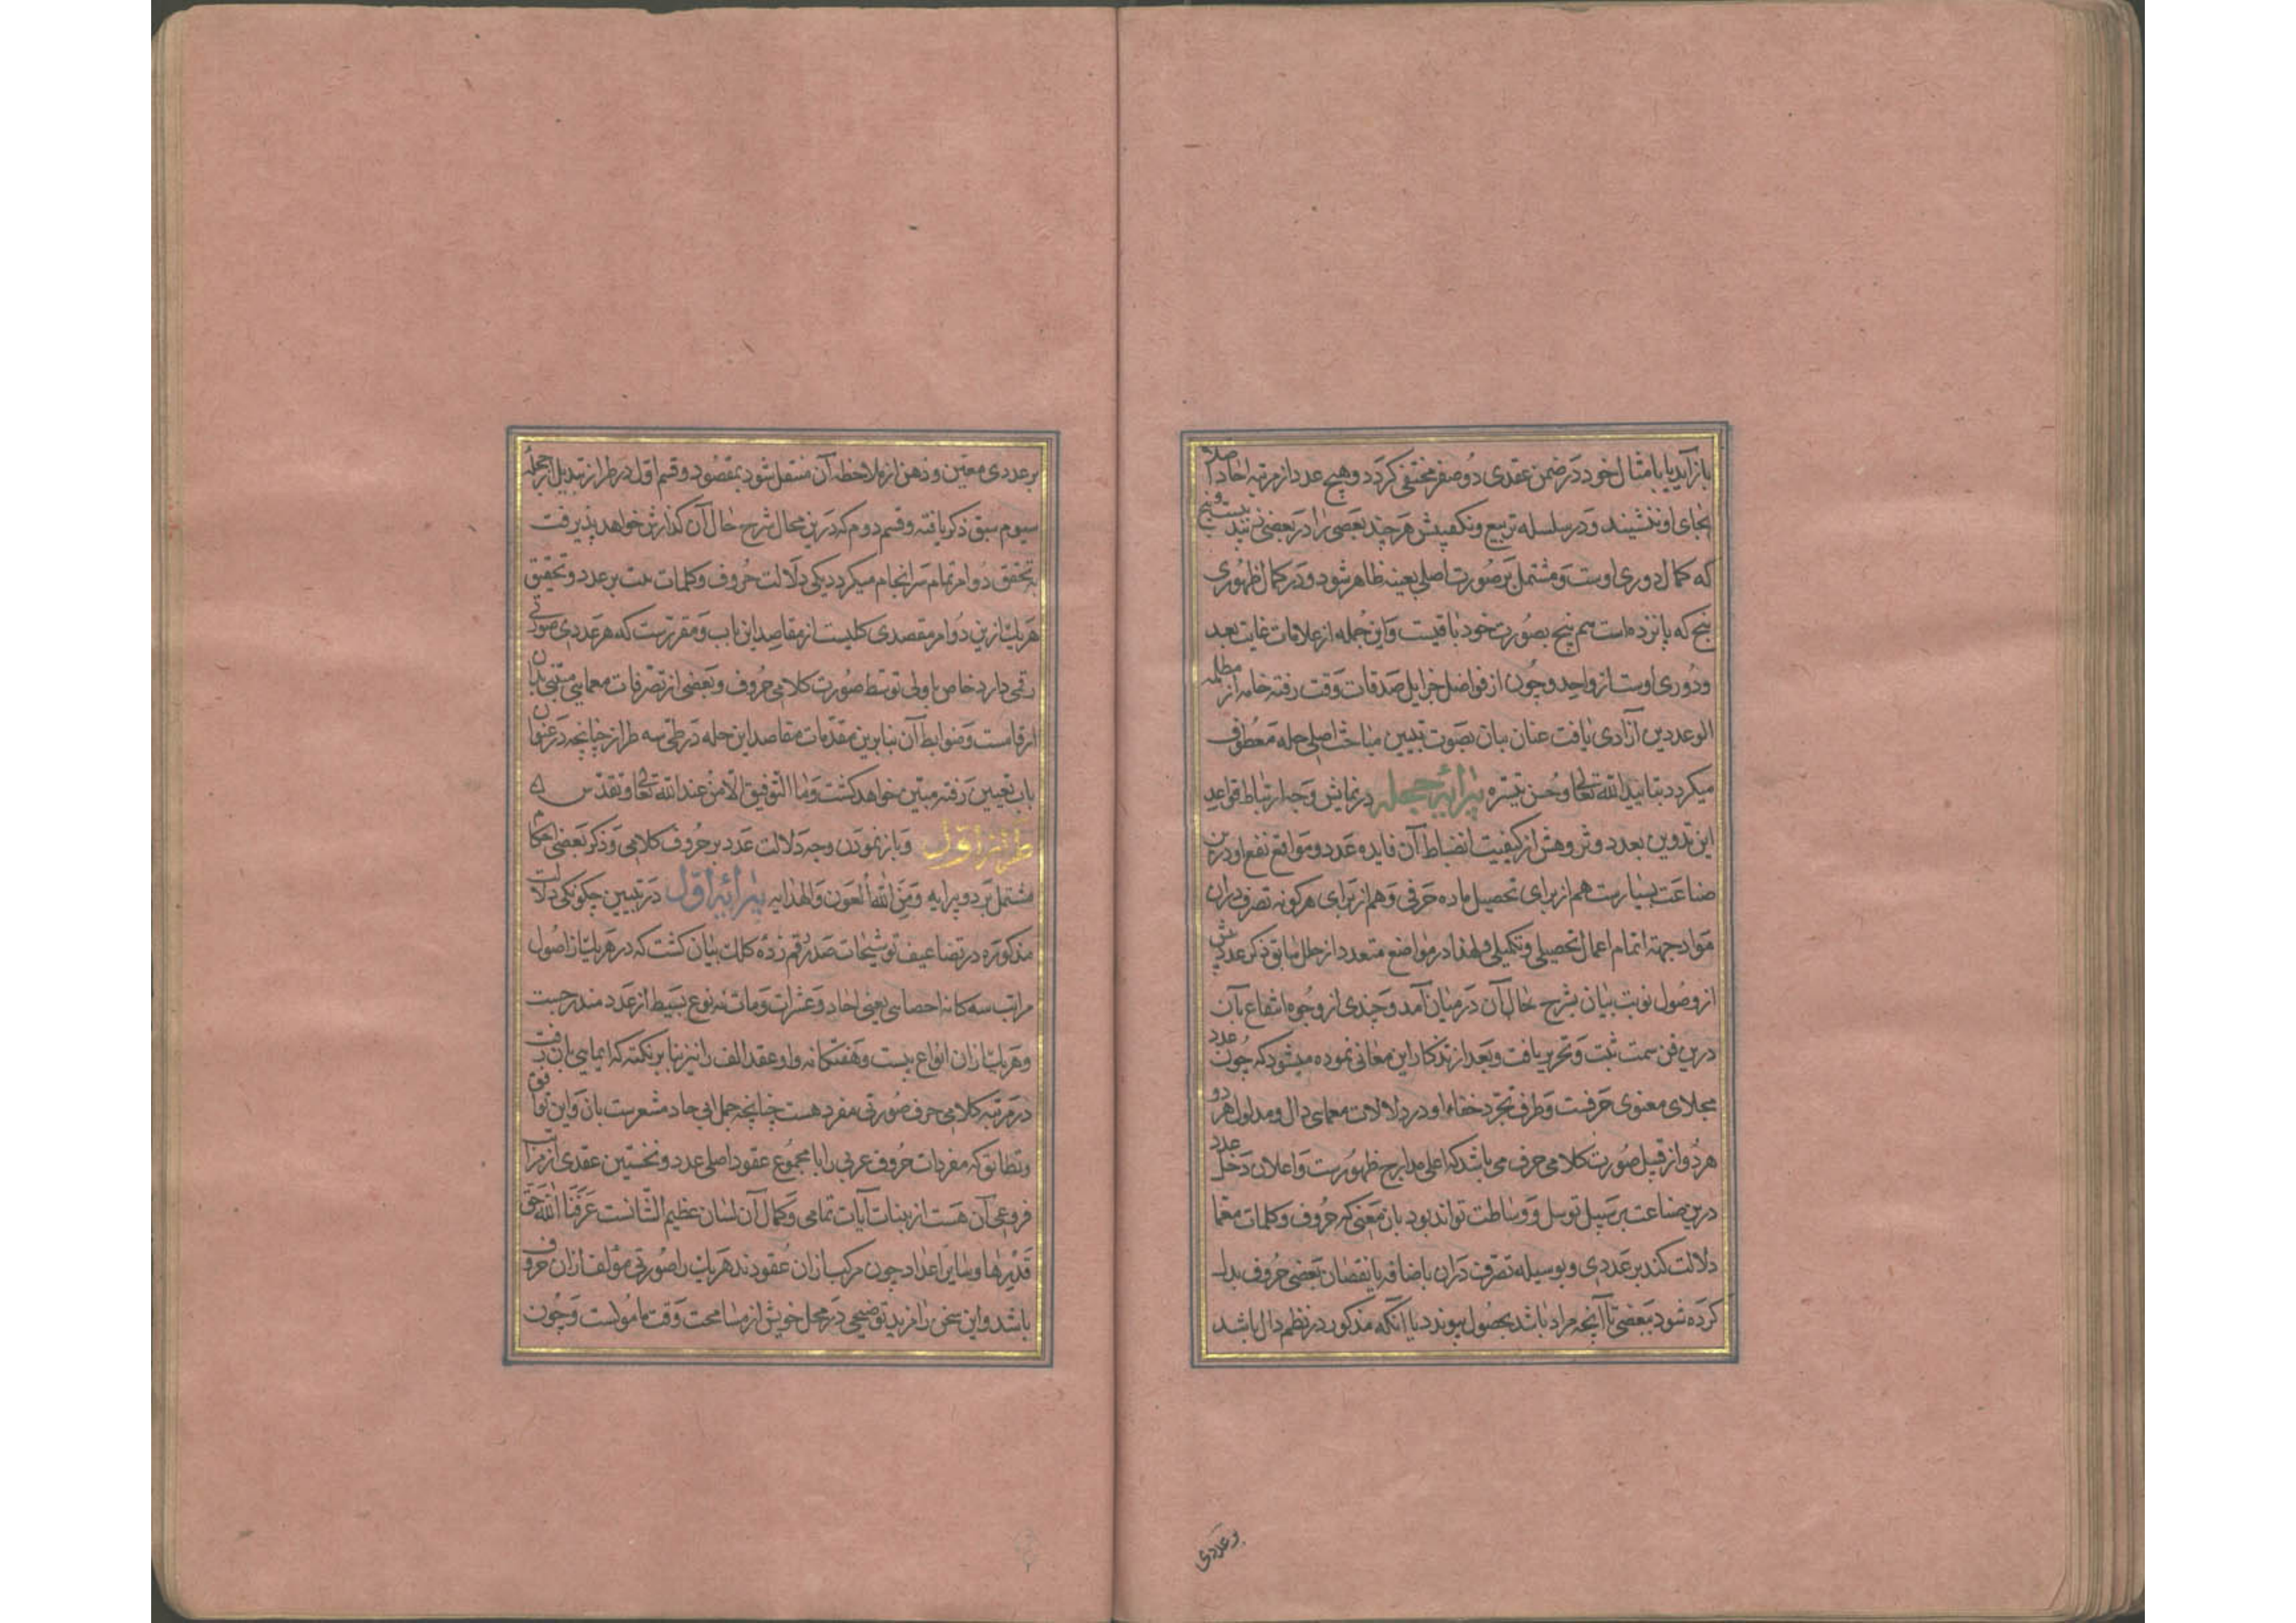 باز آید یا با مثال خود در ضمن عقدی دو صفر مختفی کردد و هیچ عدد از مرتبه احاد اصلا
بجای او ننشیند و در سلسله تربیع و تکعیبش هر چند بعضی را در بعضی زنند بیست و پنج
که کمال دوری اوست و مشتمل بر صورت اصلی بعینه ظاهر شود و در کمال ظهوری
پنج که پانزده است هم پنج بصورت خود باقیست و این جمله از علامات غایت بعد
و دوری اوست از واحد و چون از فواضل جزایل صدقات وقت رفته خامه از مطلمه
الوعد دین آزادی یافت عنان بیان بصوت تبیین مباحث اصلی حله معطوف
میکردد بتایید الله تعالی و حسن تیسره پیرایه جمله در نمایش وجه ارتباط قواعد
این تدوین بعدد و پژوهش از کیفیت انضباط آن فایده عدد و مواقع نفع او درین
صناعت بسیارست هم از برای تحصیل ماده حرفی و هم از برای هر کونه تصرف در ان
مواد جهة اتمام اعمال تحصیلی و تکمیلی و لهذا در مواضع متعدد از حلل سابق ذکر عدد پیش
از وصول نوبت بیان بشرح حال آن در میان آمد و چندی از وجوه انتفاع بان
درین فن سمت ثبت و تحریر یافت و بعد از تذکار این معانی نموده میشود که چون عدد
مجلای معنوی حرفست و طرف تجرد خفاء او در دلالات معمایی دال و مدلول هر دو
هر دو از قبل صورت کلامی حرف می باشد که اعلی مدارج ظهورست و اعلان دخل عدد
درین صناعت بر سبیل توسل و وساطت تواند بود بان معنی که حروف و کلمات معما
دلالت کند بر عددی و بوسیله تصرف در ان باضافه یا نقصان بعضی حروف بدل
کرده شود ببعضی تا آنچه مراد باشد بحصول پیوندد یا آنکه مذکور در نظم دال باشد
و عددی
بر عددی معین و ذهن از ملاحظه آن منتقل شود بمقصود و قسم اول در طراز تبدیل از حله
سیوم سبق ذکر یافته و قسم دوم که درین محال شرح حال آن کذارش خواهد پذیرفت
بتحقق دو امر تمام سرانجام میکردد یکی دلالت حروف و کلمات ست بر عدد و تحقیق
هر یک ازین دو امر مقصدی کلیست از مقاصد این باب و مقررست که هر عددی صورتی
رقمی دارد خاص باو بی توسط صورت کلامی حروف و بعضی از تصرفات معمایی مبتنی بدان
ارقامست و ضوابط آن بنابرین مقدمات مقاصد این حله در طی سه طراز چنانچه در عنوان
باب تعیین رفته مبین خواهد کشت و ما التوفیق الا من عند الله تعالی و تقدس
طراز اول و باز نمودن وجه دلالت عدد بر حروف کلامی و ذکر بعضی احکام
مشتمل بر دو پیرایه و من الله العون و الهدایه پیرایه اول در تبیین چکونکی دلالت
مذکوره در تضاعیف توشیحات صدر رقم زده کلک بیان کشت که در هر یک از اصول
مراتب سه کانه احصایی یعنی احاد و عشرات و مات نه نوع بسیط از عدد مندرجست
و هر یک از ان انواع بیست و هفتکانه و او عقد الف را نیز بنا بر نکته که ایمایی بان رفت
در مرتبه کلامی حرف صورتی مفرد هست چنانچه جمل ابی جاد مشعرست بان و این توافق
و تطابق که مفردات حروف عربی را با مجموع عقود اصلی عدد و نخستین عقدی از مراتب
فروعی آن هست از بینات آیات تمامی و کمال آن لسان عظیم الشانست عرفنا الله حق
قدرها و سایر اعداد چون مرکب از ان عقودند هر یک را صورتی مؤلف از ان حروف
باشد و این سخن را مزید توضیحی در محل خویش از مسامحت وقت مامولست و چون